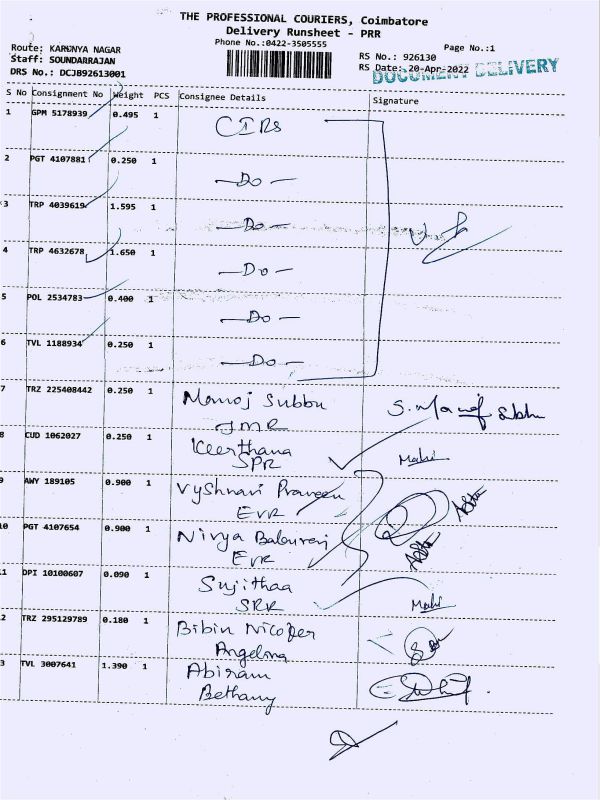 THE PROFESSIONAL COURIERS, Coimbatore
Delivery Runsheet - PRR
Phone No.:0422-3505555
Page No.:1
Route: KARUNYA NAGAR
Staff: SOUNDARRAJAN
DRS No.: DCJB92613001
RS No.: 926130
RS Date: 20-Apr-2022
DOCUMENT DELIVERY
S No Consignment No Weight PCS Consignee Details Signature
1 GPM 5178939 0.495 1 CIRS
2 PGT 4107881 0.250 1 —Do—
3 TRP 4039619 1.595 1 —Do—
4 TRP 4632678 1.650 1 —Do—
5 POL 2534783 0.400 1 —Do—
6 TVL 1188934 0.250 1 —Do—
7 TRZ 225408442 0.250 1 Manoj Subbu
JMR
8 CUD 1062027 0.250 1 Keerthana
SPR
9 AWY 189105 0.900 1 Vyshnavi Praveen
EVR
10 PGT 4107654 0.900 1 Nivya Baburaj
EVR
11 DPI 10100607 0.090 1 Sujithaa
SRR
12 TRZ 295129789 0.180 1 Bibin Nicoper
Angelina
13 TVL 3007641 1.390 1 Abiram
Bethany